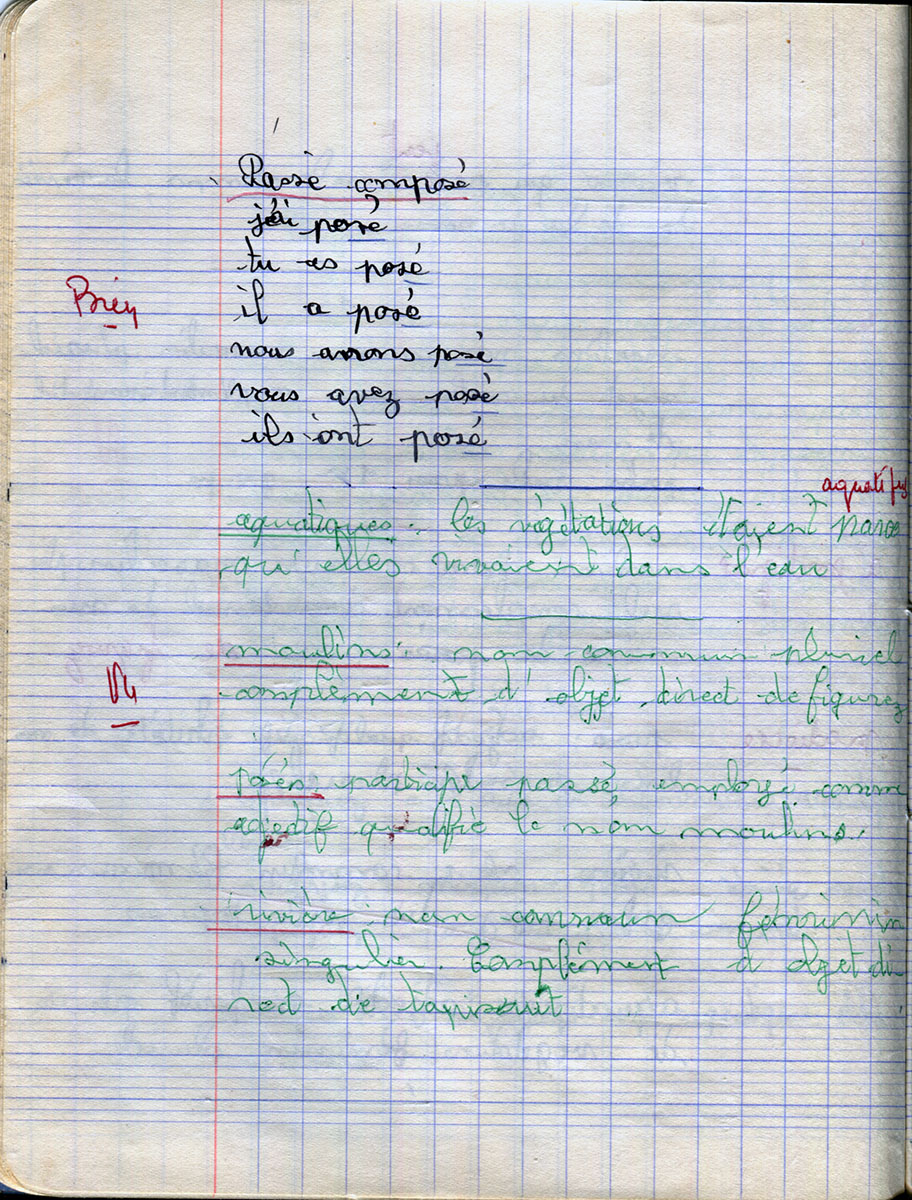 Passè composé
j'ai posé
tu as posé
il a posé
Bien
nous avons posé
vous avez posé
ils ont posé
aquatiques
aquatiques. les végétations étaient parce
qu'elles vivaient dans l'eau
moulins. nom commun pluriel
Vu
complèment d'objet direct de figurez
posés participe passé employé comme
adjectif qualifie le nom moulins.
rivière nom commun féminin
singulier. Complément d'objet di
rect de tapissait